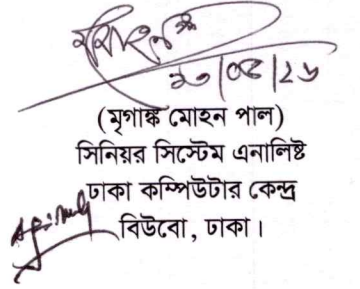 (মৃগাঙ্ক মোহন পাল)
সিনিয়র সিস্টেম এনালিষ্ট
ঢাকা কম্পিউটার কেন্দ্র
বিউবো, ঢাকা।